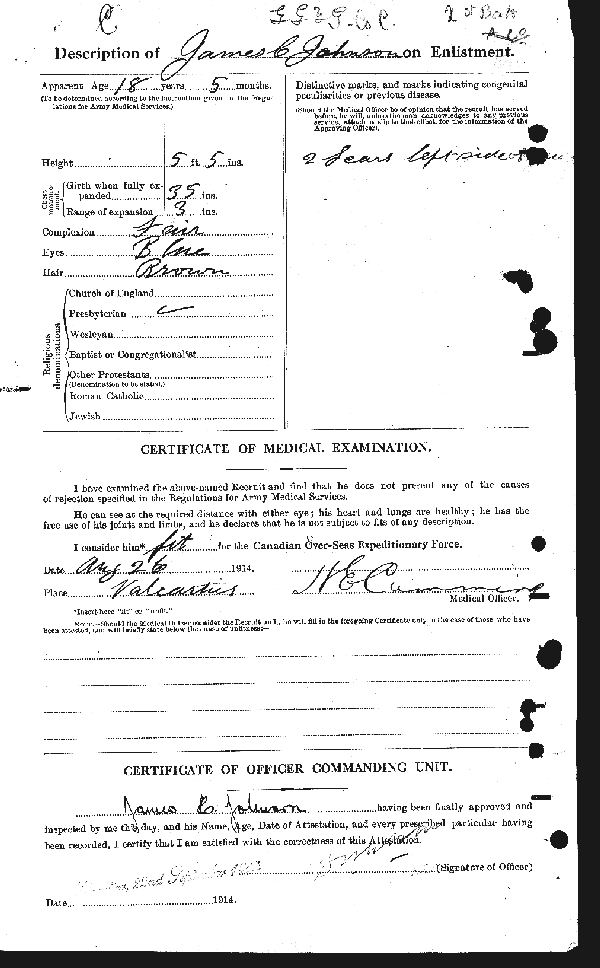 C
2nd Batt
Description of James C Johnson on Enlistment.
Apparent Age 18 years 5 months.
(To be determined according to the instructions given in the Regulations for Army Medical Services.)
Height 5 ft 5 ins.
Chest measurement.
Girth when fully expanded 35 ins.
Range of expansion 3 ins.
Complexion Fair
Eyes Blue
Hair Brown
Religious denominations
Church of England
Presbyterian ✓
Wesleyan
Baptist or Congregationalist
Other Protestants
(Denomination to be stated.)
Roman Catholic
Jewish
Distinctive marks, and marks indicating congenital
peculiarities or previous disease.
(Should the Medical Officer be of opinion that the recruit has served
before, he will, unless the man acknowledges to any previous
service, attach a slip to that effect, for the information of the
Approving Officer).
2 Scars left side
CERTIFICATE OF MEDICAL EXAMINATION.
I have examined the above-named Recruit and find that he does not present any of the causes
of rejection specified in the Regulations for Army Medical Services.
He can see at the required distance with either eye; his heart and lungs are healthy; he has the
free use of his joints and limbs, and he declares that he is not subject to fits of any description.
I consider him* fit for the Canadian Over-Seas Expeditionary Force.
Date Aug 26 1914.
Place Valcartier
Medical Officer.
*Insert here "fit" or "unfit."
NOTE.—Should the Medical Officer consider the Recruit unfit, he will fill in the foregoing Certificate only in the case of those who have
been attested, and will briefly state below the cause of unfitness:—
CERTIFICATE OF OFFICER COMMANDING UNIT.
James C Johnson having been finally approved and
inspected by me this day, and his Name, Age, Date of Attestation, and every prescribed particular having
been recorded, I certify that I am satisfied with the correctness of this Attestation.
(Signature of Officer)
Date 1914.